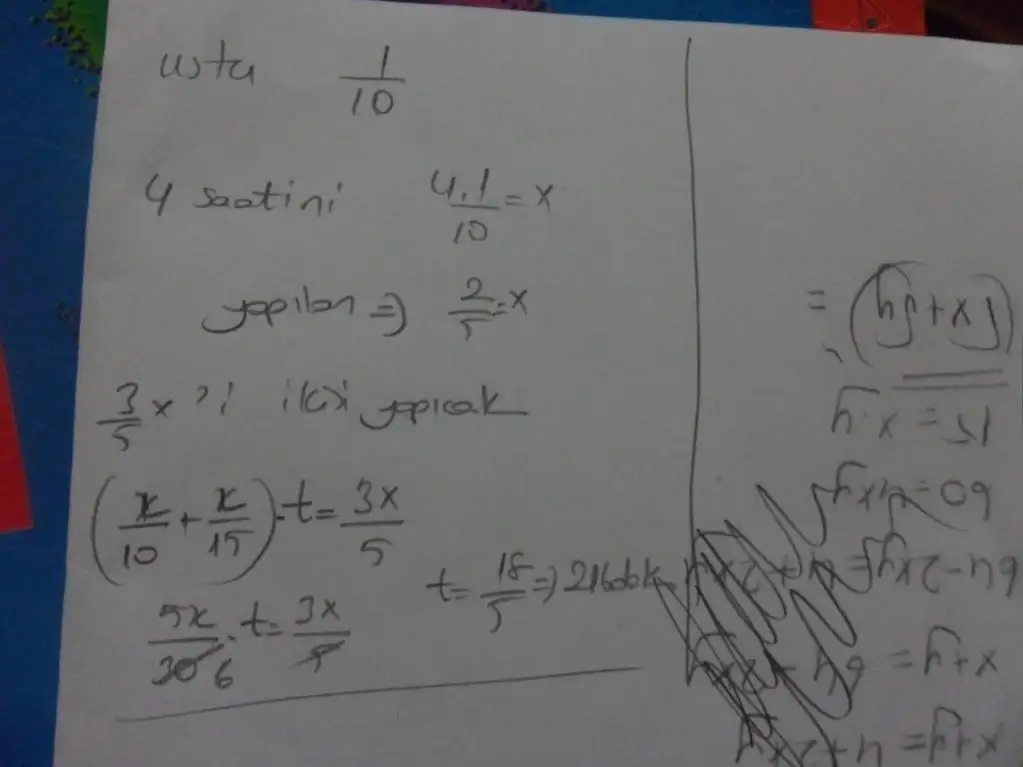 usta 1/10
4 saatini 4.1/10 = x
yapılan => 2/5 = x
3/5 x 'i ikisi yapıcak
(x/10 + x/15) . t = 3x/5
5x/30 6 . t = 3x/5
t = 18/5 => 216 dk
x+y = 4+2xy
x+y = 64
64-2xy =
60 = 4xy
15 = x.y
(√x+√y) =